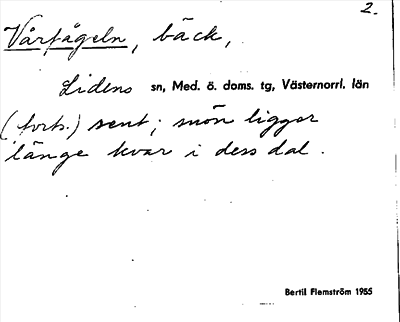 2.
Vårfågeln, bäck,
Lidens sn, Med. ö. doms. tg, Västernorrl. län
(forts.) sent; snön ligger
länge kvar i dess dal.
Bertil Flemström 1955